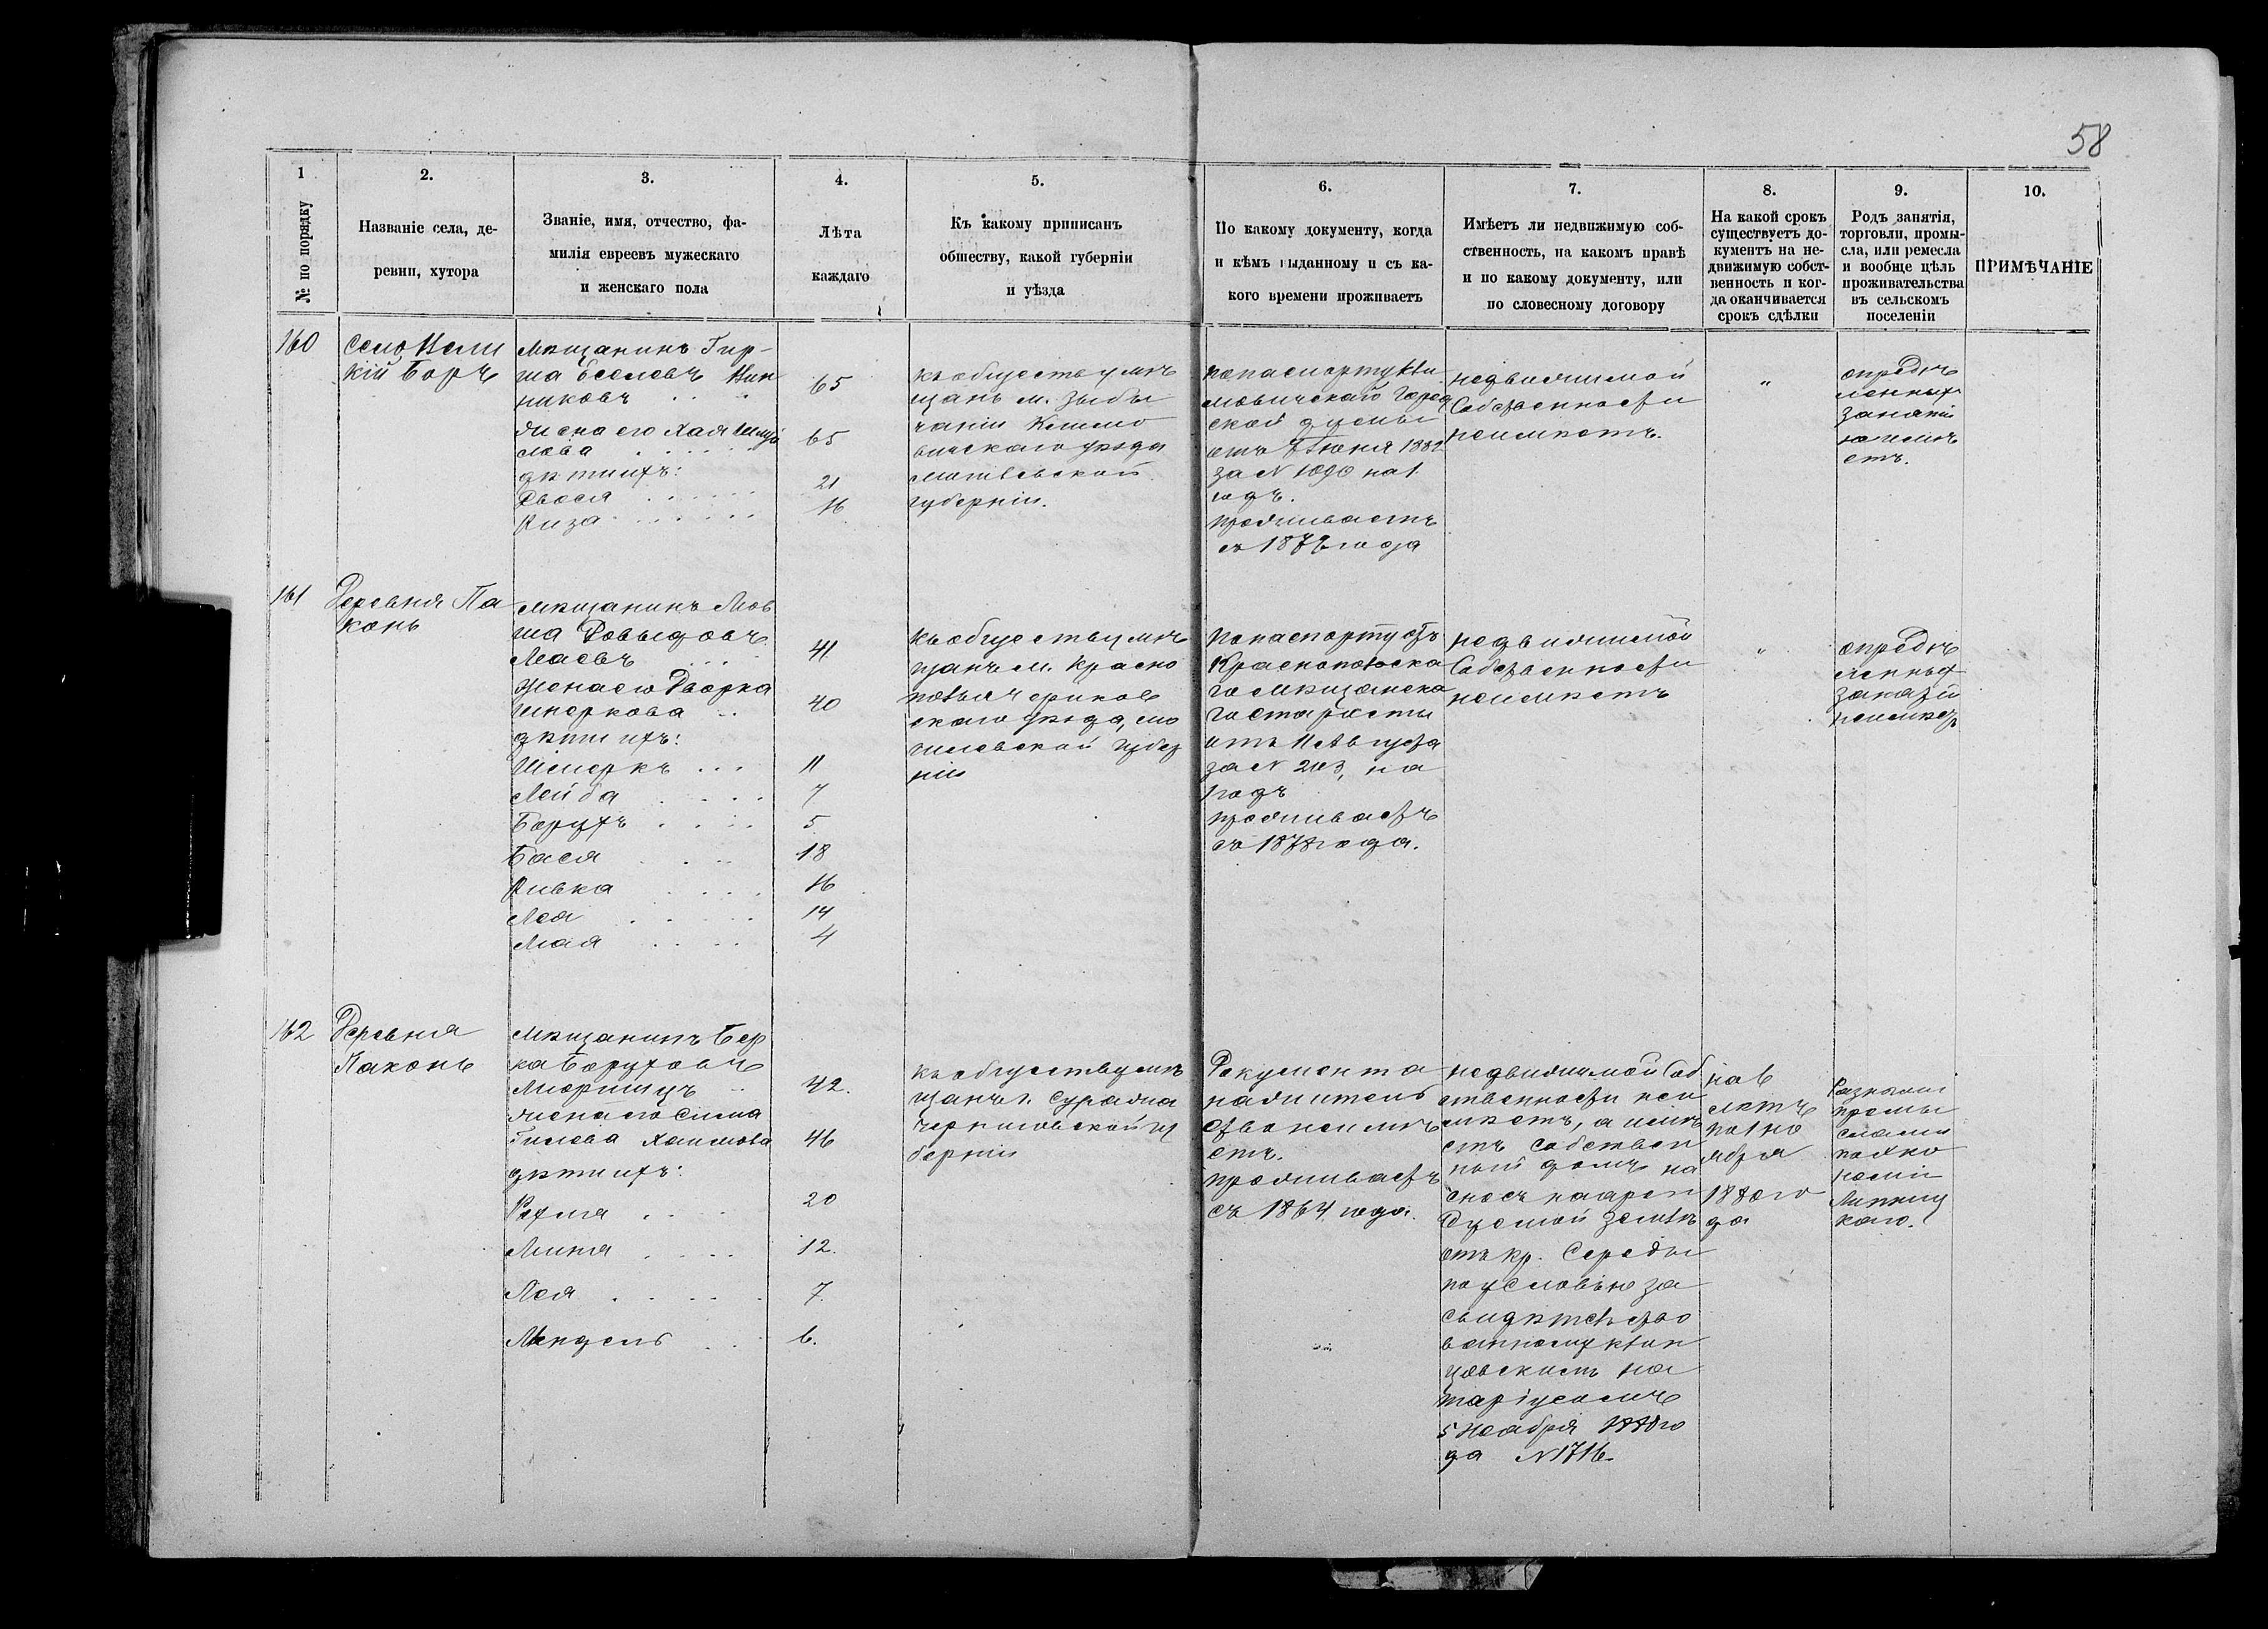 58
1
2.
3.
4.
5.
6.
7.
8.
9.
10.
№ по порядку
Названіе села, де-
ревни, хутора
Званіе, имя, отчество, фа-
милія евреевъ мужескаго
и женскаго пола
Лѣта
каждаго
Къ какому приписанъ
обществу, какой губерніи
и уѣзда
По какому документу, когда
и кѣмъ выданному и съ ка-
кого времени проживаетъ
Имѣетъ ли недвижимую соб-
ственность, на какомъ правѣ
и по какому документу, или
по словесному договору
На какой срокъ
существуетъ до-
кументъ на не-
движимую собст-
венность и ког-
да оканчивается
срокъ сдѣлки
Родъ занятія,
торговли, промы-
сла, или ремесла
и вообще цѣль
проживательства
въ сельскомъ
поселеніи
ПРИМѢЧАНІЕ
160
село
кій Боръ
мѣщанинъ Гир-
ша
никовъ
65
жена его Хая
65
дѣти ихъ:
Двося
21
Риза
16
къ обществу мѣ
щанъ м.
Климо
вичскаго уѣзда
могилевской
губерніи.
по паспорту Кли
мовичской Город
ской думы
отъ Іюня 1882
за N 1090 на 1
годъ.
проживаетъ
съ 1872 года
недвижимой
Собственности
неимѣетъ.
"
опредѣ
ленныхъ
занятій
неимѣ
етъ.
161
Деревня Па
конь
мѣщанинъ Мов
ша Довыдовъ
Маевъ
41
Жена его Дворка
Шмеркова
40
дѣти ихъ:
Шмерка
11
Лейба
7
Борухъ
5
Бася
18
Ривка
16
Лея
14
Мая
4
къ обществу мѣ
щанъ м. Красно
полья чериков
скаго уѣзда, мо
гилевской губер
ніи
По паспорту отъ
Краснопольска
го мѣщанска
го старосты
отъ 11 Августа
за N 203, на
1 годъ
проживаетъ
съ 1878 года.
недвижимой
Собственности
неимѣетъ
"
опредѣ
ленныхъ
занятій
неимѣетъ
162
Деревня
Паконь
мѣщанинъ Бер
ка Боруховъ
42.
жена его Сима
Хаимова
46
дѣти ихъ:
Рохля
20
Миня
12.
Лея
7.
Мендель
6.
къ обществу мѣ
щанъ г. Суража
черниговской гу
берніи
Документа
на жительс
ство неимѣ
етъ.
проживаетъ
съ 1864 года.
недвижимой Соб
ственности неи
мѣетъ, а имѣ
етъ собствен
ный домъ на
сносъ на арен
дуемой землѣ
отъ кр. Середы
по условію за
свидѣтельство
ванному Клин
цовскимъ но
таріусомъ
5 Ноября 1880 го
да N 1716.
на 6
лѣтъ
по 1 но
ября
188
да
промы
слами